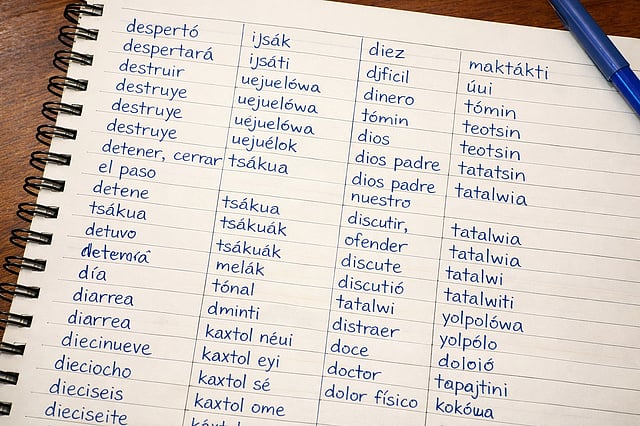 despertó ijsák diez maktákti
despertará ijsáti djficil úui
destruir uejuelówa dinero tómin
destruye uejuelówa tómin teotsin
destruye uejuelówa dios teotsin
destruye uejuélok dios padre tatatsin
detener, cerrar tsákua dios padre tatalwia
el paso nuestro
detene tsákua discutir, tatalwia
tsákua tsákuák ofender tatalwia
detuvo tsákuák discute tatalwi
melák discutió tatalwiti
día tónal tatalwi yolpolówa
diarrea dminti distraer yolpólo
diarrea kaxtol néui doce doloió
diecinueve kaxtol eyi doctor tapajtini
dieciocho kaxtol sé dolor físico kokówa
dieciseis kaxtol ome
dieciseite